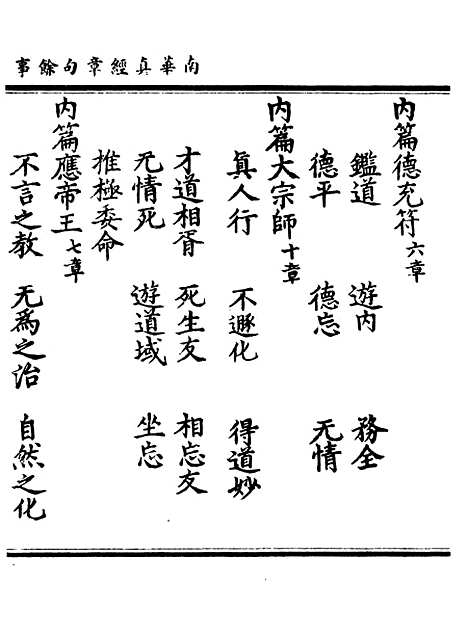 南華真經章句餘事
内篇德充符六章
鑑道 遊内 務全
德平 德忘 无情
内篇大宗師十章
真人行 不遯化 得道妙
才道相胥 死生友 相忘友
无情死 遊道域 坐忘
推極委命
内篇應帝王七章
不言之教 无為之治 自然之化